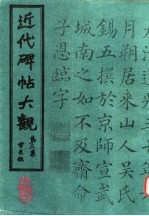 近代碑帖大觀
第三集
月朔居來山人吳氏
錫五撰於京師宣武
城南之如不及齋命
子恩臨字